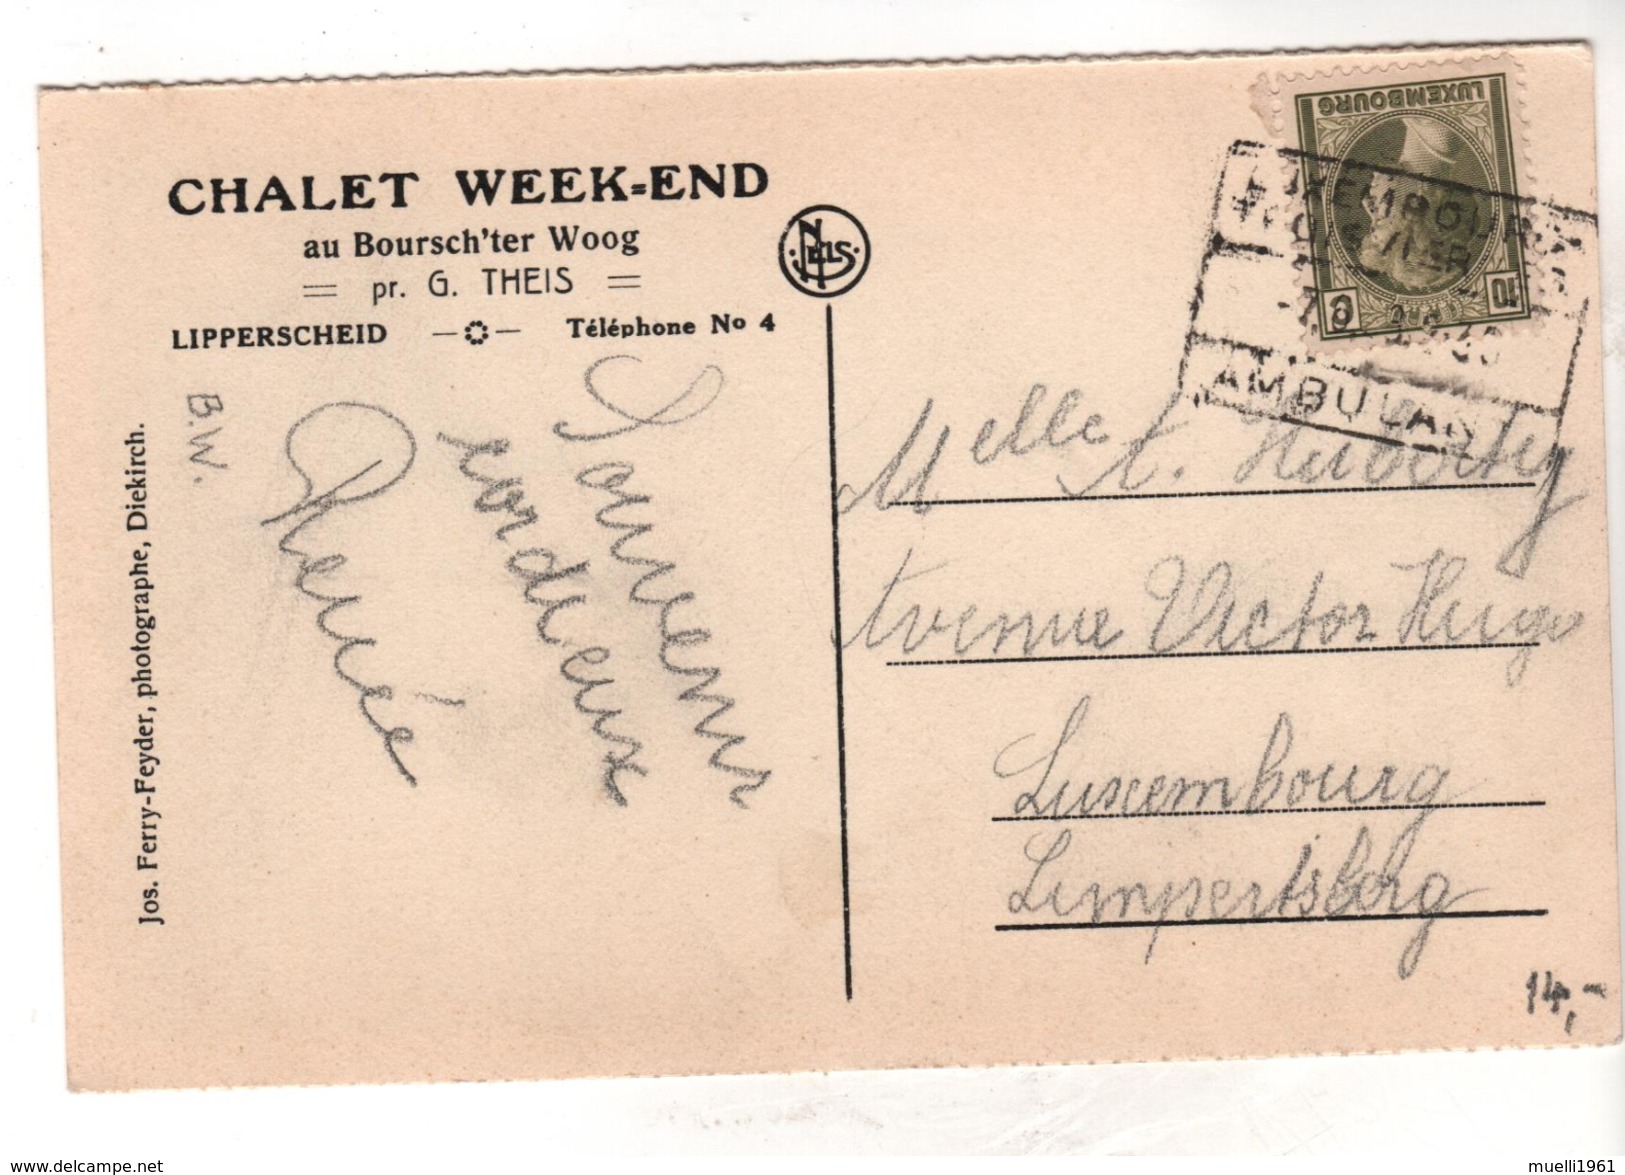 CHALET WEEK=END
au Boursch'ter Woog
pr. G. THEIS
LIPPERSCHEID
Téléphone No 4
NELS
B.W.
Souvenir
cordieux
Renée
Jos. Ferry-Feyder, photographe, Diekirch.
LUXEMBOURG
10
AMBULANT
Melle A. Huberty
Avenue Victor Hugo
Luxembourg
Limpertsberg
14,-
www.delcampe.net
muelli1961